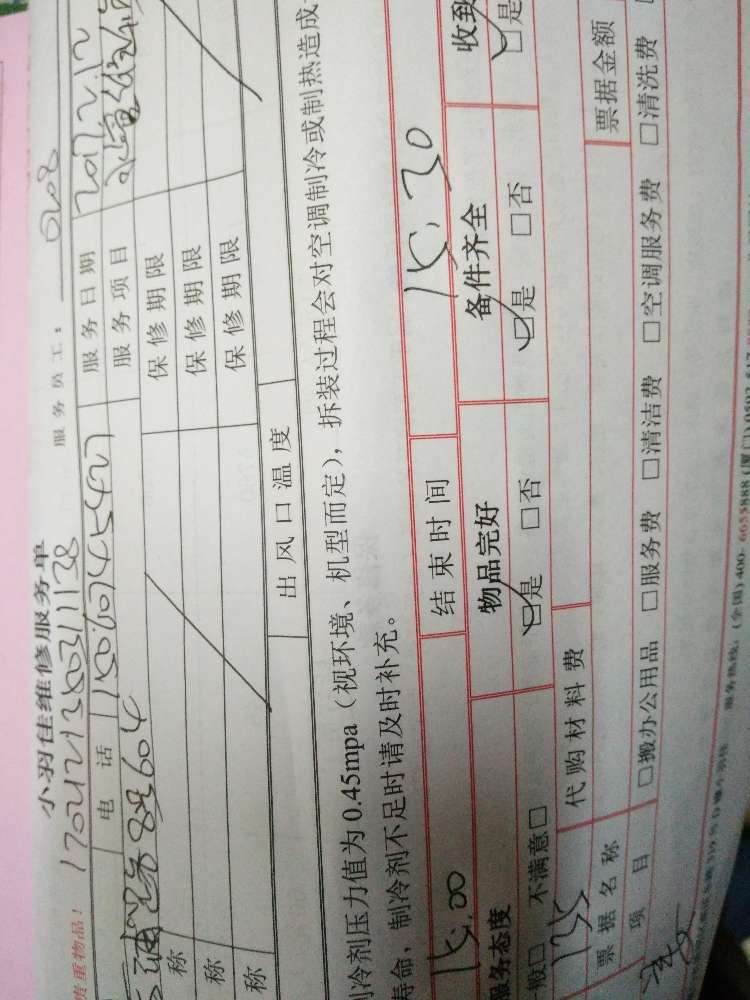 小羽佳维修服务单
贵重物品! 170212138031138 服务员工: 0208
电话 服务日期 2017.2.12
服务项目
称 保修期限
称 保修期限
称 保修期限
出风口温度
制冷剂压力值为 0.45mpa (视环境、机型而定), 拆装过程会对空调制冷或制热造成
寿命, 制冷剂不足时请及时补充。
15:00 结束时间 15:30
服务态度 物品完好 备件齐全 收到
般□ 不满意□ □是 □否 □是 □否 □是
135 代购材料费
票据名称 票据金额
项目 □搬办公用品 □服务费 □清洁费 □空调服务费 □清洗费
服务热线: (全国) 400-6655888 (厦门)